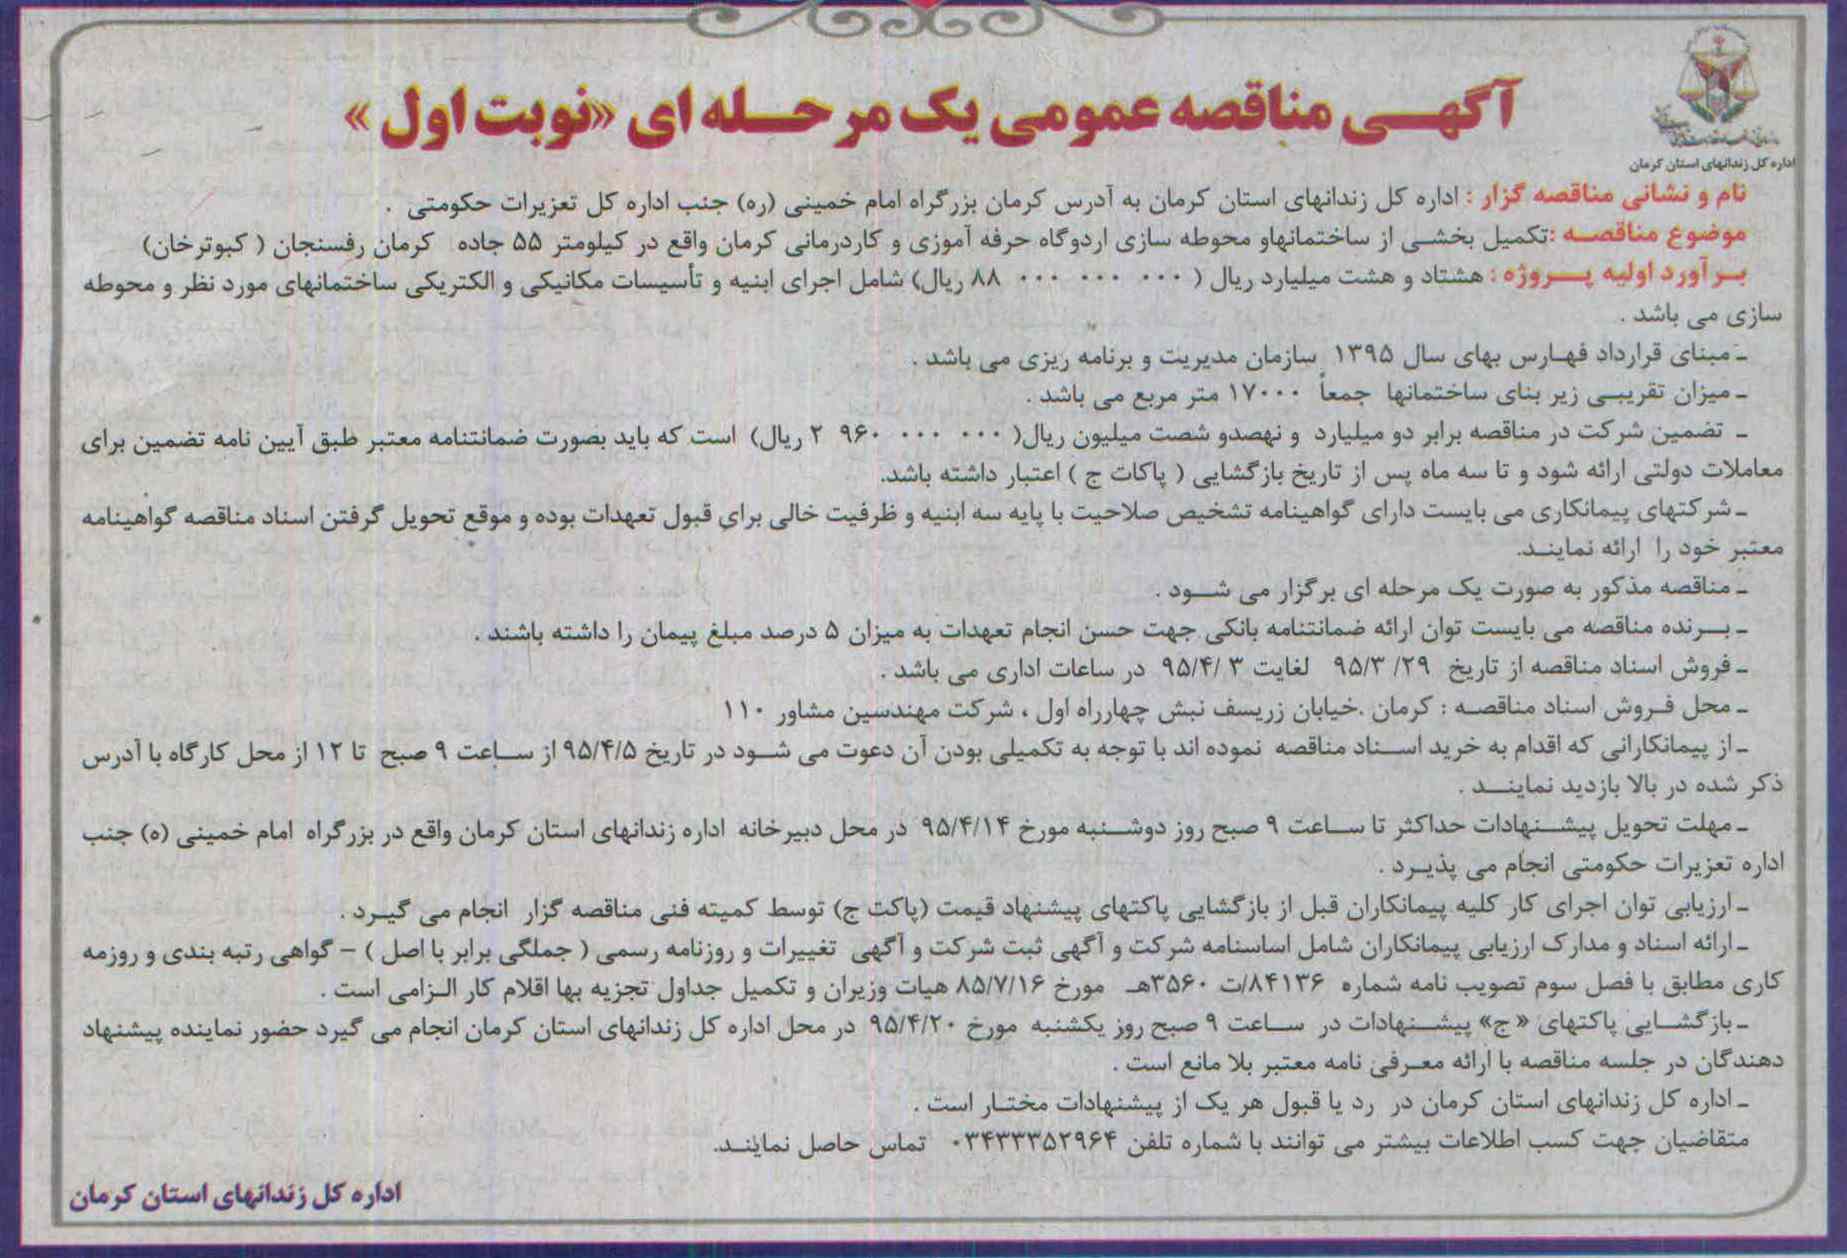 اداره کل زندانهای استان کرمان
آگهی مناقصه عمومی یک مرحله ای «نوبت اول»
نام و نشانی مناقصه گزار : اداره کل زندانهای استان کرمان به آدرس کرمان بزرگراه امام خمینی (ره) جنب اداره کل تعزیرات حکومتی .
موضوع مناقصه :تکمیل بخشی از ساختمانهاو محوطه سازی اردوگاه حرفه آموزی و کاردرمانی کرمان واقع در کیلومتر ۵۵ جاده کرمان رفسنجان ( کبوترخان)
برآورد اولیه پروژه : هشتاد و هشت میلیارد ریال ( ۰۰۰ ۰۰۰ ۰۰۰ ۸۸ ریال) شامل اجرای ابنیه و تأسیسات مکانیکی و الکتریکی ساختمانهای مورد نظر و محوطه
سازی می باشد .
ـ مبنای قرارداد فهارس بهای سال ۱۳۹۵ سازمان مدیریت و برنامه ریزی می باشد .
ـ میزان تقریبی زیر بنای ساختمانها جمعاً ۱۷۰۰۰ متر مربع می باشد .
ـ تضمین شرکت در مناقصه برابر دو میلیارد و نهصدو شصت میلیون ریال( ۰۰۰ ۰۰۰ ۹۶۰ ۲ ریال) است که باید بصورت ضمانتنامه معتبر طبق آیین نامه تضمین برای
معاملات دولتی ارائه شود و تا سه ماه پس از تاریخ بازگشایی ( پاکات ج ) اعتبار داشته باشد.
ـ شرکتهای پیمانکاری می بایست دارای گواهینامه تشخیص صلاحیت با پایه سه ابنیه و ظرفیت خالی برای قبول تعهدات بوده و موقع تحویل گرفتن اسناد مناقصه گواهینامه
معتبر خود را ارائه نمایند.
ـ مناقصه مذکور به صورت یک مرحله ای برگزار می شود .
ـ برنده مناقصه می بایست توان ارائه ضمانتنامه بانکی جهت حسن انجام تعهدات به میزان ۵ درصد مبلغ پیمان را داشته باشند .
ـ فروش اسناد مناقصه از تاریخ ۹۵/۳/۲۹ لغایت ۹۵/۴/۳ در ساعات اداری می باشد .
ـ محل فروش اسناد مناقصه : کرمان .خیابان زریسف نبش چهارراه اول ، شرکت مهندسین مشاور ۱۱۰
ـ از پیمانکارانی که اقدام به خرید اسناد مناقصه نموده اند با توجه به تکمیلی بودن آن دعوت می شود در تاریخ ۹۵/۴/۵ از ساعت ۹ صبح تا ۱۲ از محل کارگاه با آدرس
ذکر شده در بالا بازدید نمایند .
ـ مهلت تحویل پیشنهادات حداکثر تا ساعت ۹ صبح روز دوشنبه مورخ ۹۵/۴/۱۴ در محل دبیرخانه اداره زندانهای استان کرمان واقع در بزرگراه امام خمینی (ه) جنب
اداره تعزیرات حکومتی انجام می پذیرد .
ـ ارزیابی توان اجرای کار کلیه پیمانکاران قبل از بازگشایی پاکتهای پیشنهاد قیمت (پاکت ج) توسط کمیته فنی مناقصه گزار انجام می گیرد .
ـ ارائه اسناد و مدارک ارزیابی پیمانکاران شامل اساسنامه شرکت و آگهی ثبت شرکت و آگهی تغییرات و روزنامه رسمی ( جملگی برابر با اصل ) – گواهی رتبه بندی و روزمه
کاری مطابق با فصل سوم تصویب نامه شماره ۸۴۱۳۶/ت ۳۵۶۰هـ مورخ ۸۵/۷/۱۶ هیات وزیران و تکمیل جداول تجزیه بها اقلام کار الزامی است .
ـ بازگشایی پاکتهای «ج» پیشنهادات در ساعت ۹ صبح روز یکشنبه مورخ ۹۵/۴/۲۰ در محل اداره کل زندانهای استان کرمان انجام می گیرد حضور نماینده پیشنهاد
دهندگان در جلسه مناقصه با ارائه معرفی نامه معتبر بلا مانع است .
ـ اداره کل زندانهای استان کرمان در رد یا قبول هر یک از پیشنهادات مختار است .
متقاضیان جهت کسب اطلاعات بیشتر می توانند با شماره تلفن ۰۳۴۳۳۳۵۲۹۶۴ تماس حاصل نمایند.
اداره کل زندانهای استان کرمان